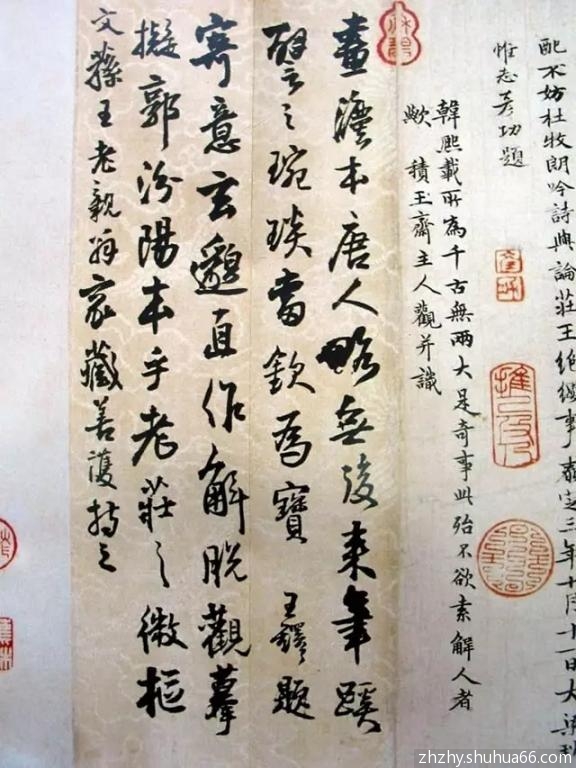 配不妨杜牧朗吟詩與論莊王絕纓事泰定三年十月十一日大梁班
惟志彥功題
韓熙載所為千古無兩大是奇事此殆不欲索解人者
歟 積玉齋主人觀并識
畫灋本唐人略無後來筆蹊
譬之琬琰當欽為寶 王鐸題
寄意玄邈直作解脫觀摹
擬郭汾陽本乎老莊之微樞
文蓀王老親翁家藏善護持之
zhzhy.shuhua66.com